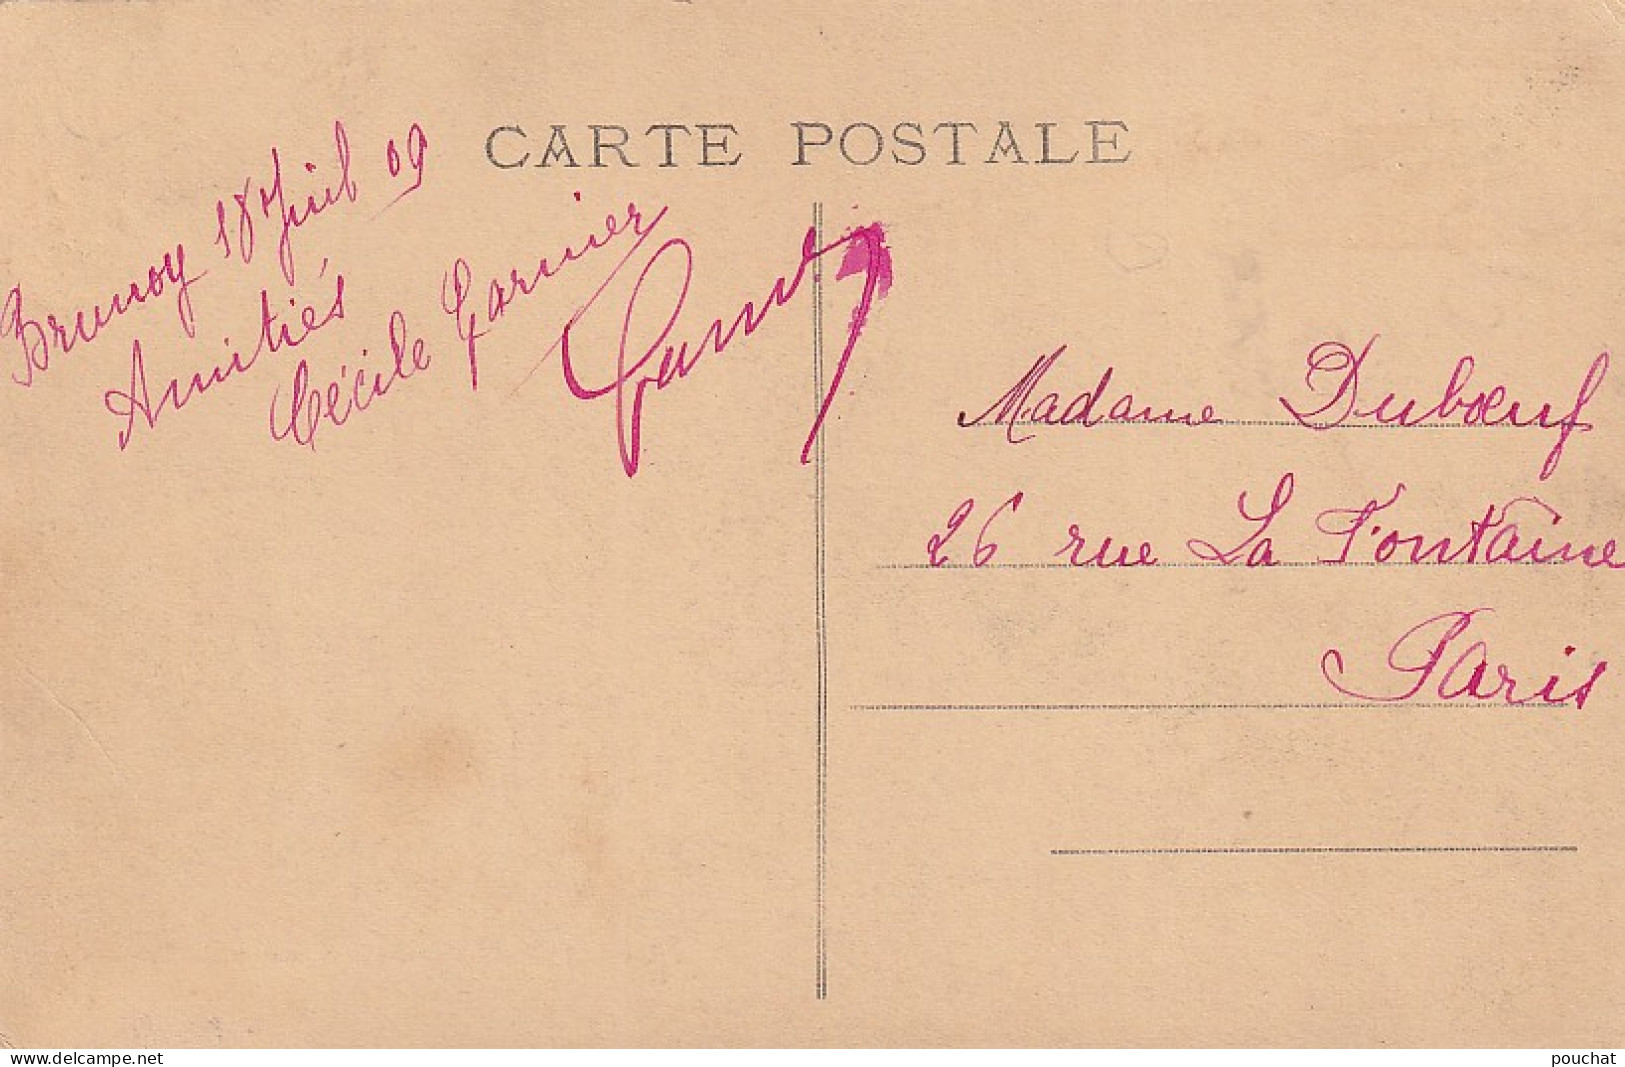 CARTE POSTALE
Brunoy 18 Juil 09
Amitiés
Cécile Garnier
Madame Dubœuf
26 rue La Fontaine
Paris
www.delcampe.net
pouchat